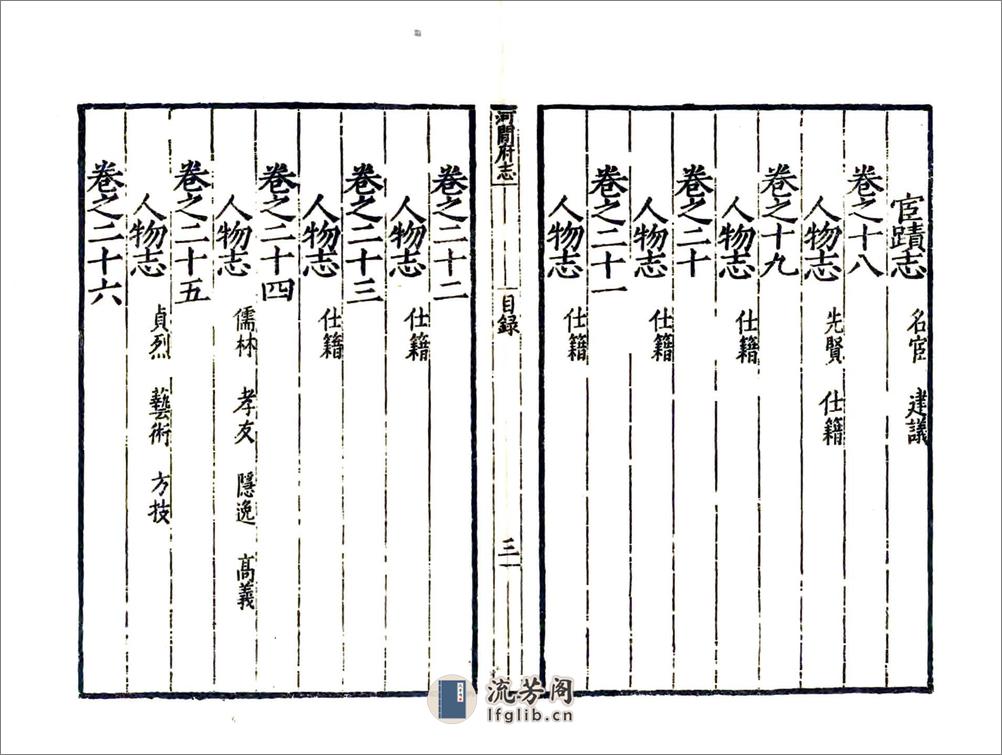 宦蹟志 名宦 建議
卷之十八
人物志 先賢 仕籍
卷之十九
人物志 仕籍
卷之二十
人物志 仕籍
卷之二十一
人物志 仕籍
河間府志 目録 三
卷之二十二
人物志 仕籍
卷之二十三
人物志 仕籍
卷之二十四
人物志 儒林 孝友 隱逸 高義
卷之二十五
人物志 貞烈 藝術 方技
卷之二十六
流芳阁
lfglib.cn